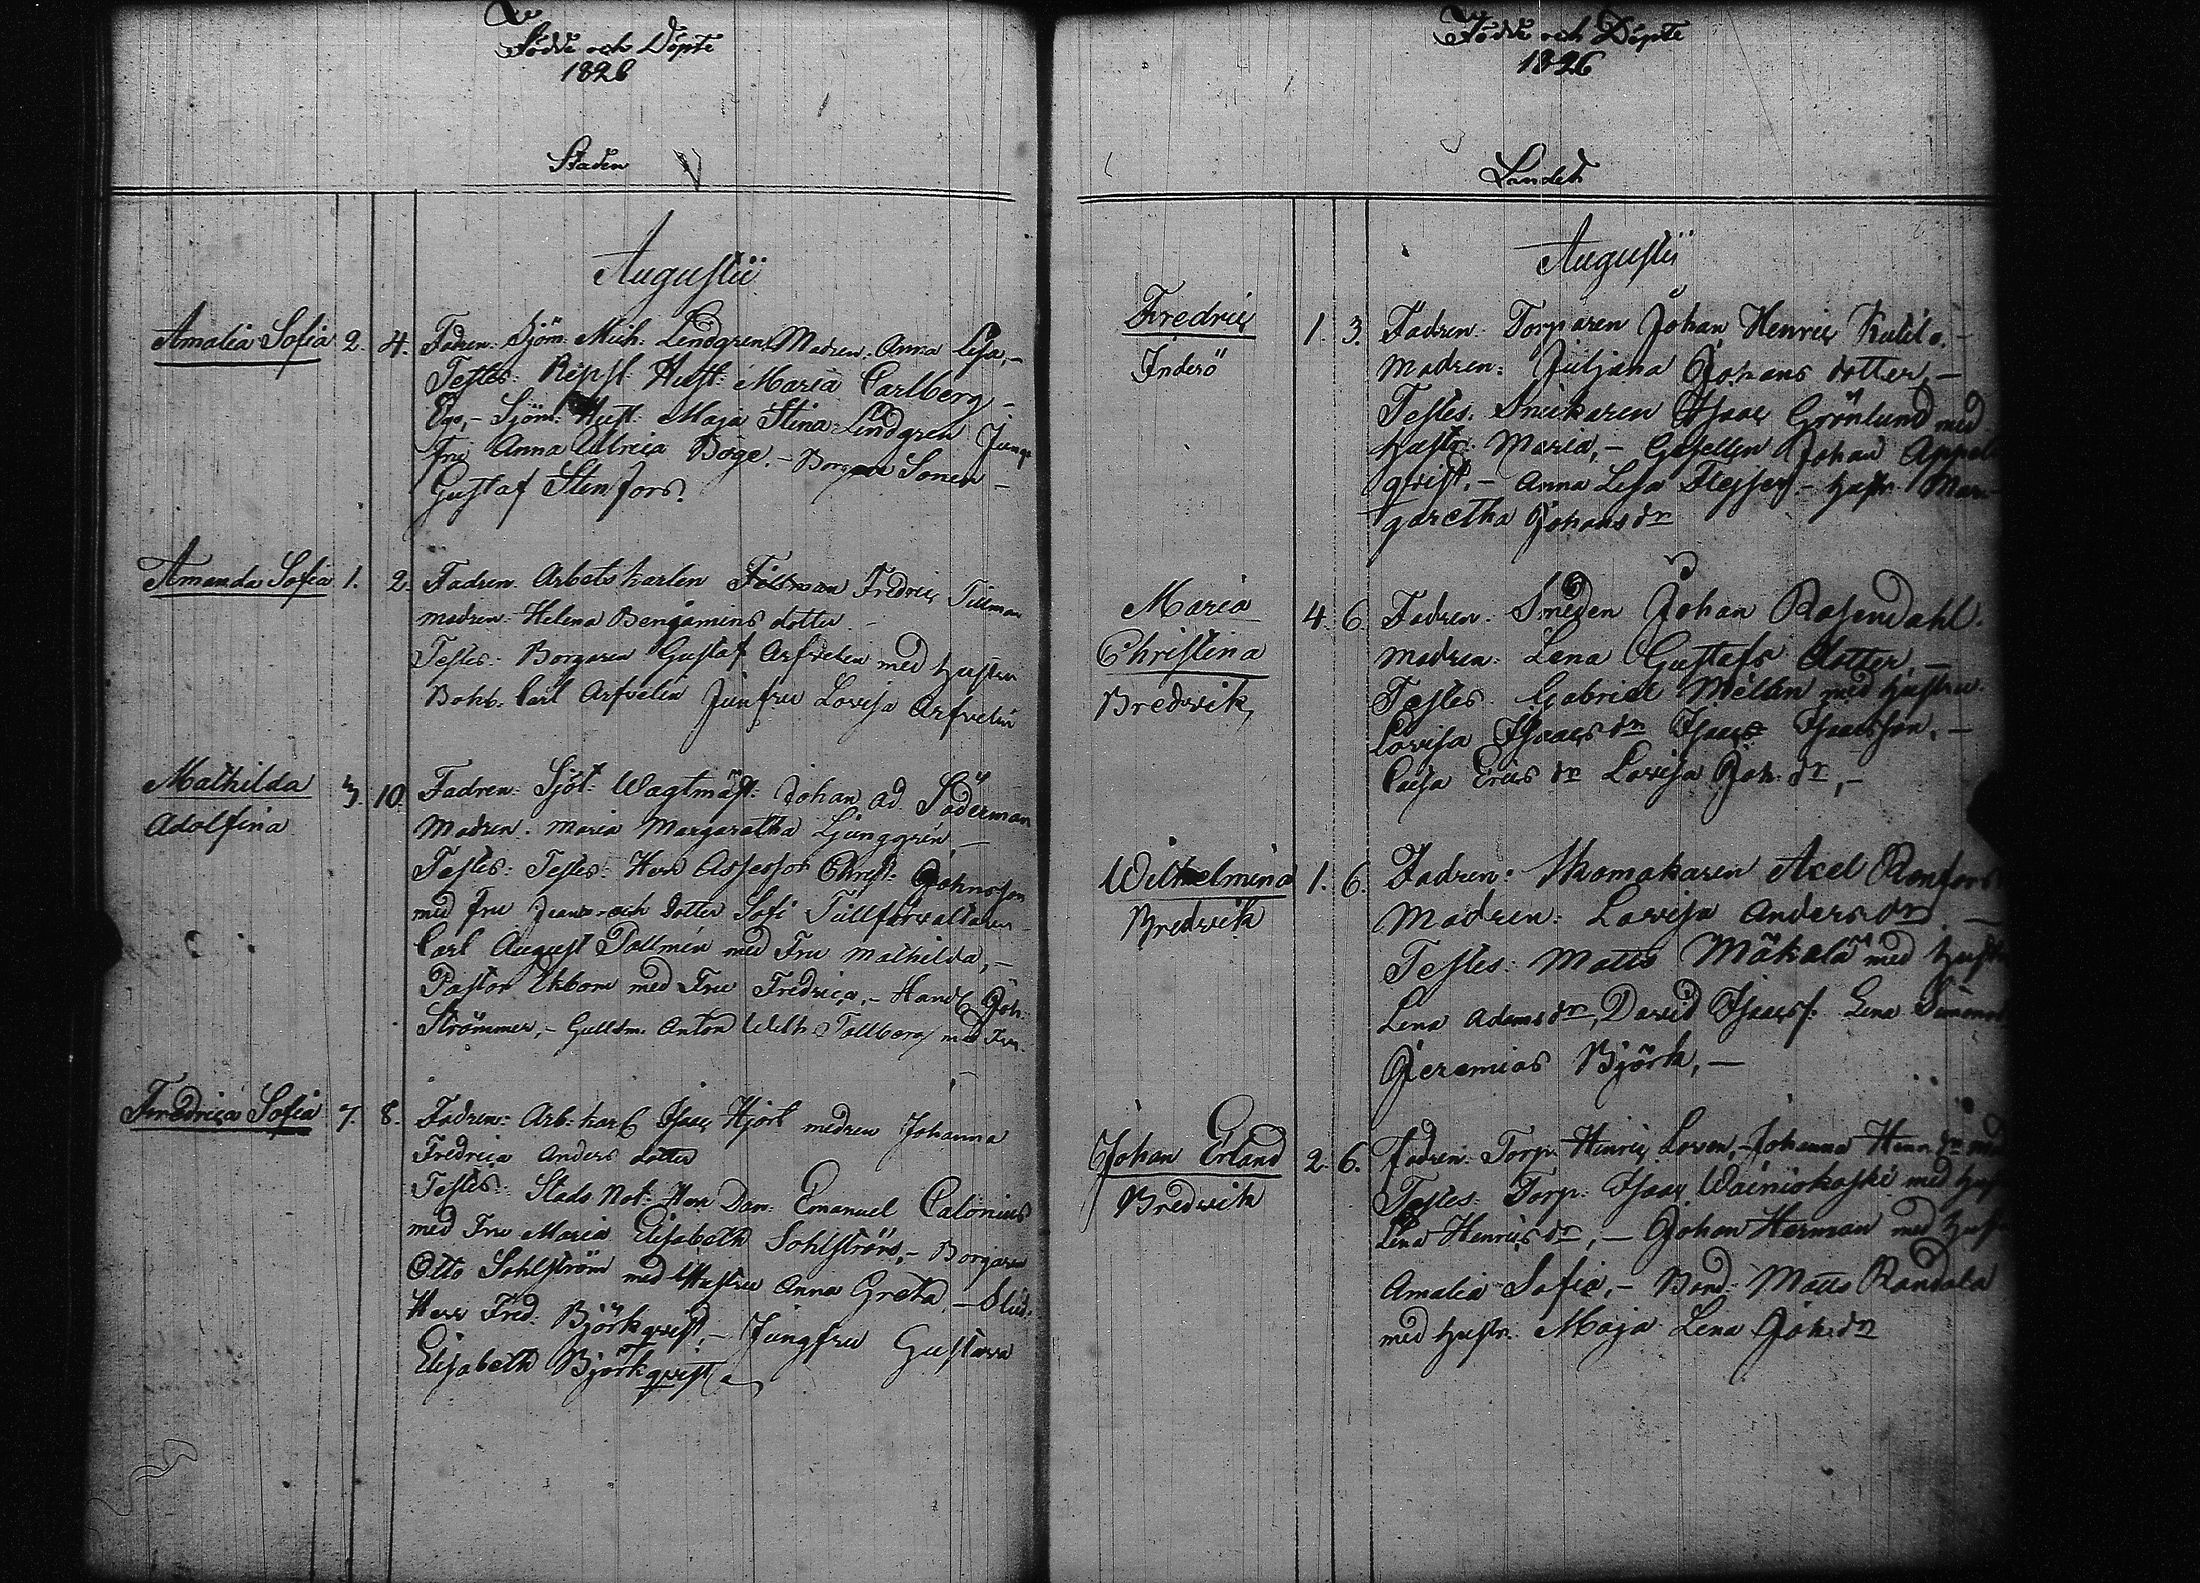 Födde och Döpte
1826
Staden
Augustii
Amalia Sofia 2. 4. Fadren: Sjöm. Mich. Lindgren, Madren. Anna Lisa,-
Testes: Repsl. Hust: Maria Carlberg -
Ego,- Sjöm: Hust: Maja Stina Lindgren Jung-
fru Anna Ulrica Böge.- Borgare Sonen -
Gustaf Stenfors.
Amanda Sofia 1. 2. Fadren. Arbetskarlen Fredric Tillman
madren. Helena Benjamins dotter -
Testes: Borgaren Gustaf Arfvelin med Hustru
Bohb. Carl Arfvelin Junfru Lovisa Arfvelin
Mathilda 3. 10. Fadren: Sjöt: Wagtmäst: Johan Ad. Söderman
Adolfina Madren. Maria Margaretha Ljunggrén -
Testes: Testes: Herr Assessor Christ: Johnsson
med fru och dotter Sofi Tullförvaltaren
Carl August Pallmén med Fru Mathilda,-
Pastor Ekbom med Fru Fredrica,- Handl Joh:
Strömmer,- Gulldm. Anton Wilh. Tallberg med Fru.
Fredrica Sofia 7. 8. Fadren: Arb: karl Isaac Hjort medren Johanna
Fredrica Anders dotter
Testes: Stads Not: Herr Dan: Emanuel Calonius
med Fru Maria Elisabeth Sohlström,- Borgaren
Otto Sohlström med Hustru Anna Greta,- Stud:
Herr Fred: Björkqvist,- Jungfru Gustava
Elisabeth Björkqvist
Födde och Döpte
1826
Landet
Augustii
Fredric 1. 3. Fadren. Torparen Johan Henric Kulila.-
Inderö Madren: Juljana Johans dotter,-
Testes. Snickaren Isaac Grönlund med
hustr: Maria,- Gesellen Johan Appel
qvist,- Anna Lisa Flejser - hustr Mar-
garetha Johansdr
Maria 4. 6. Fadren. Smeden Johan Rosendahl.
Christina Madren: Lena Gustafs dotter.-
Bredvik, Testes. Gabriel Mélén med hustru
Lovisa Isaacsdr Isaac Isaacsson.-
Caisa Ericsdr Lovisa Joh. dr,-
Wilhelmina 1. 6. Fadren: Skomakaren Axel Ronfors
Bredvik Madren: Lovisa Andersdr -
Testes: Matts Mäkälä med hustr
Lena Adamsdr, David Isaacs: Lena Simons
Jeremias Björk,-
Johan Erland 2. 6. Fadren: Torp. Henric Loven,- Johanna Henr. dr
Bredvik Testes: Torp: Isaac Wäiniökoski med hust
Lena Henricsdr,- Johan Herman med hust
Amalia Sofia,- Bond: Matts Randala
med hustr. Maja Lena Joh.dr